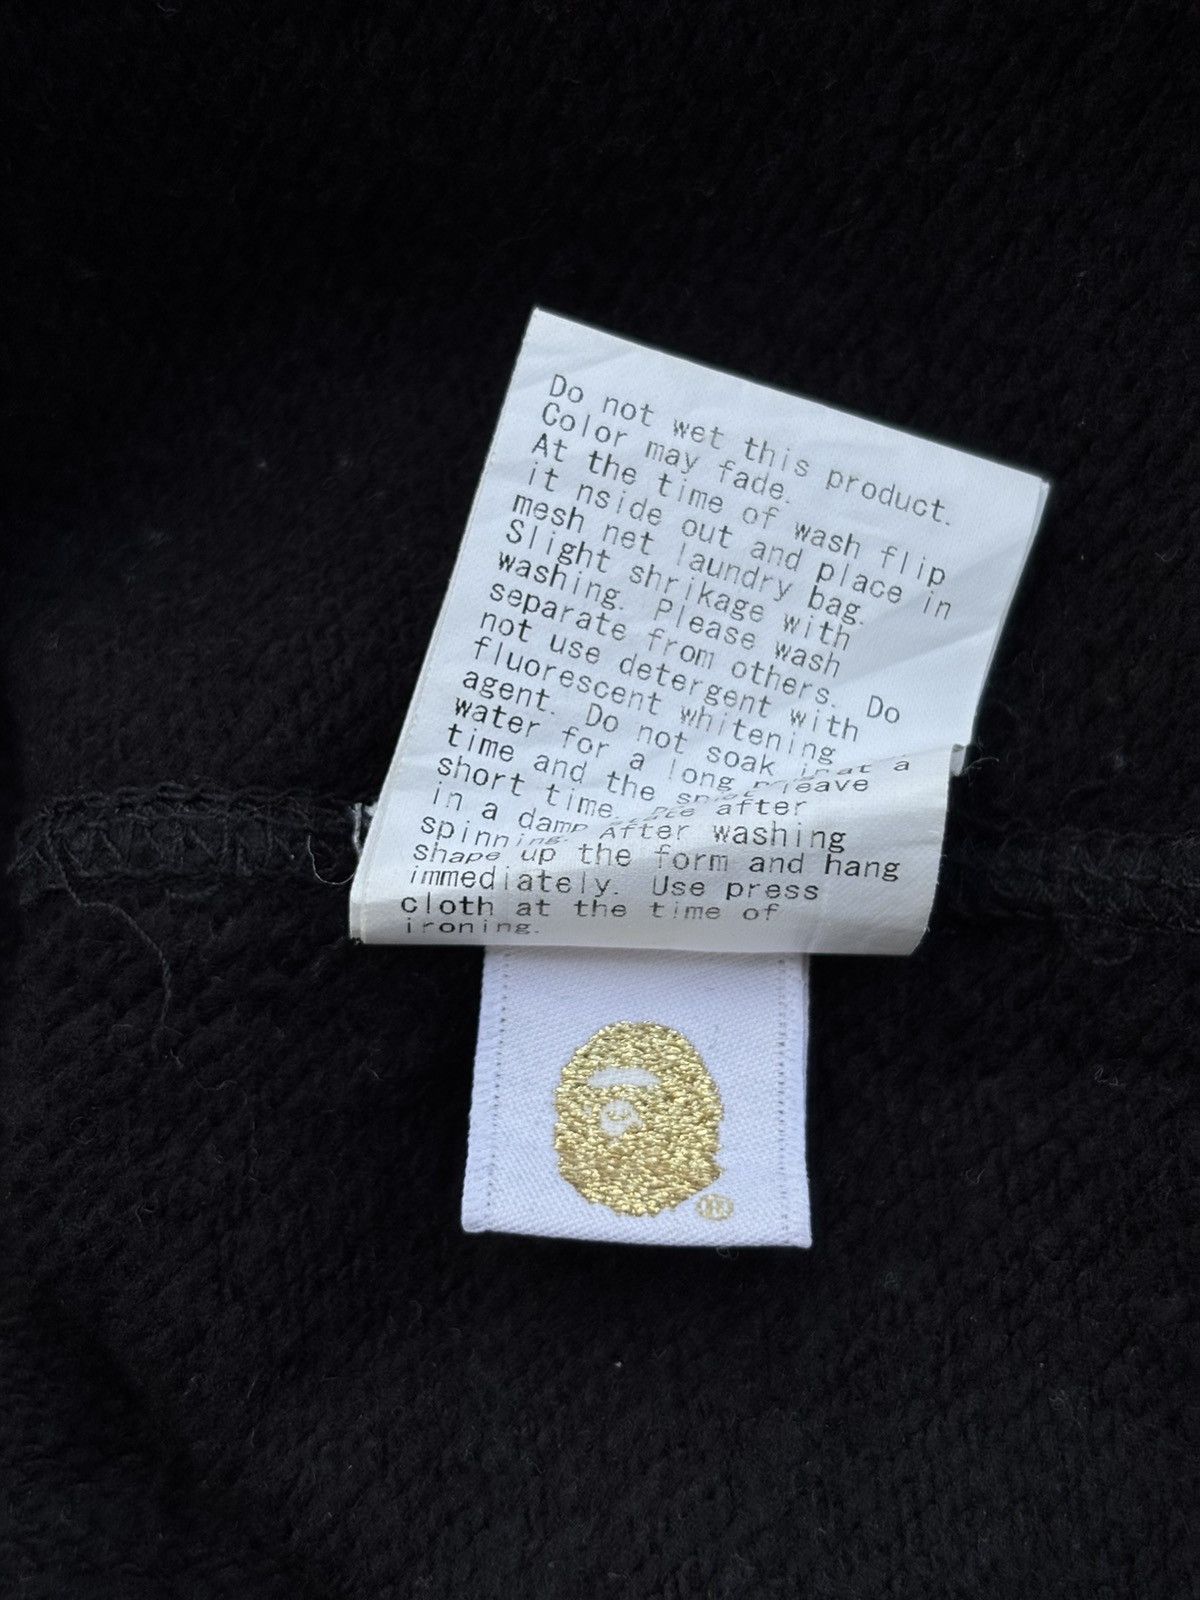 Do not wet this product.
Color may fade.
At the time of wash flip
it nside out and place in
mesh net laundry bag.
Slight shrikage with
washing. Please wash
separate from others. Do
not use detergent with
fluorescent whitening
agent. Do not soak a
water for a long leave
time and the after
short time.
in a damp After washing
spinning.
shape up the form and hang
immediately. Use press
cloth at the time of
ironing.
®